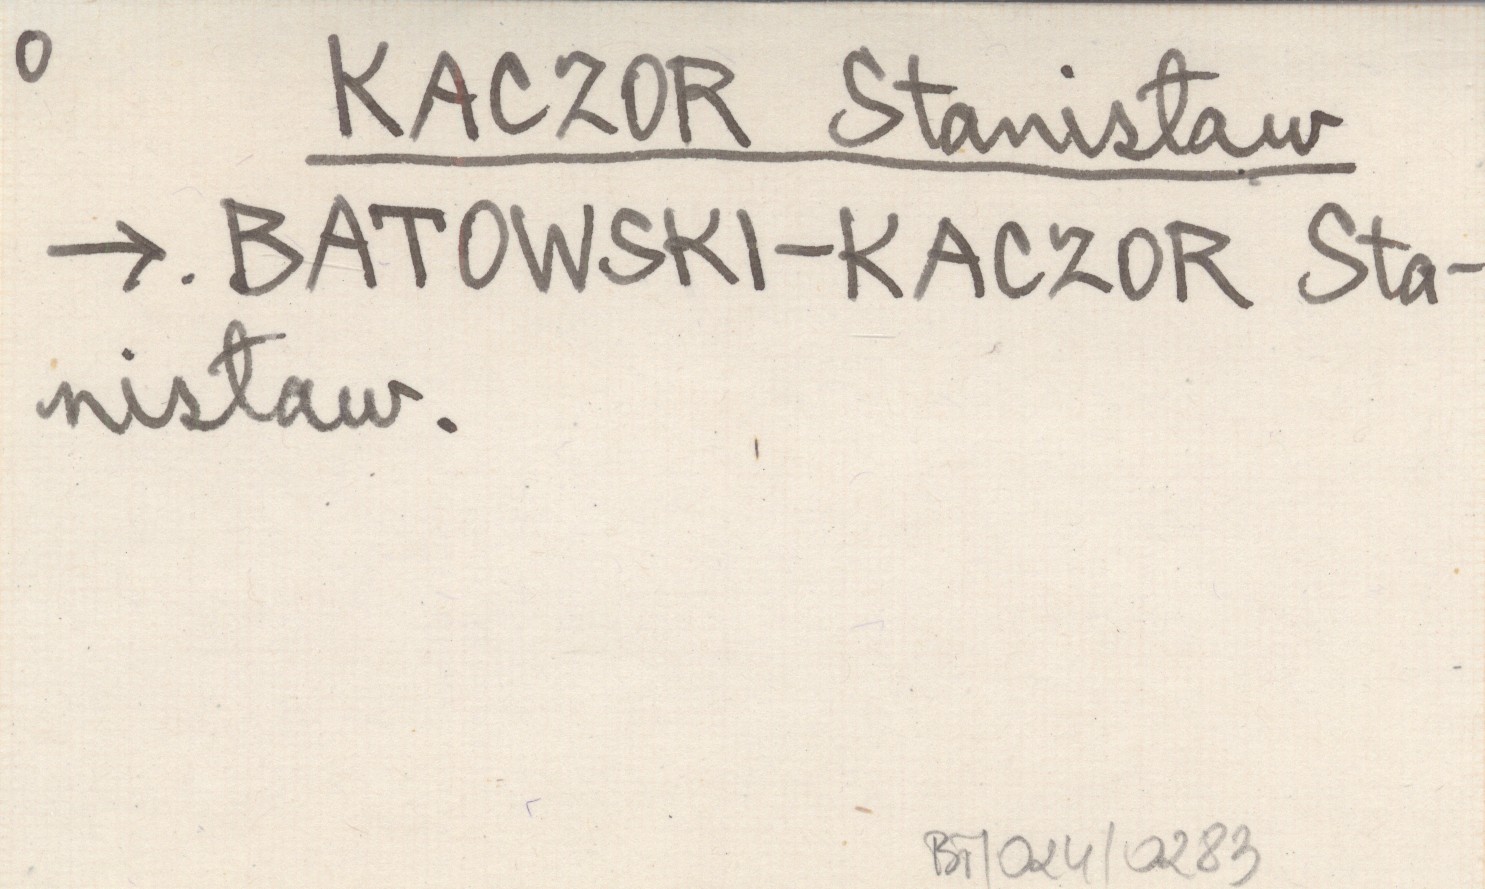 O
KACZOR Stanisław
→. BATOWSKI-KACZOR Sta-
nisław.
BŤ/024/0283